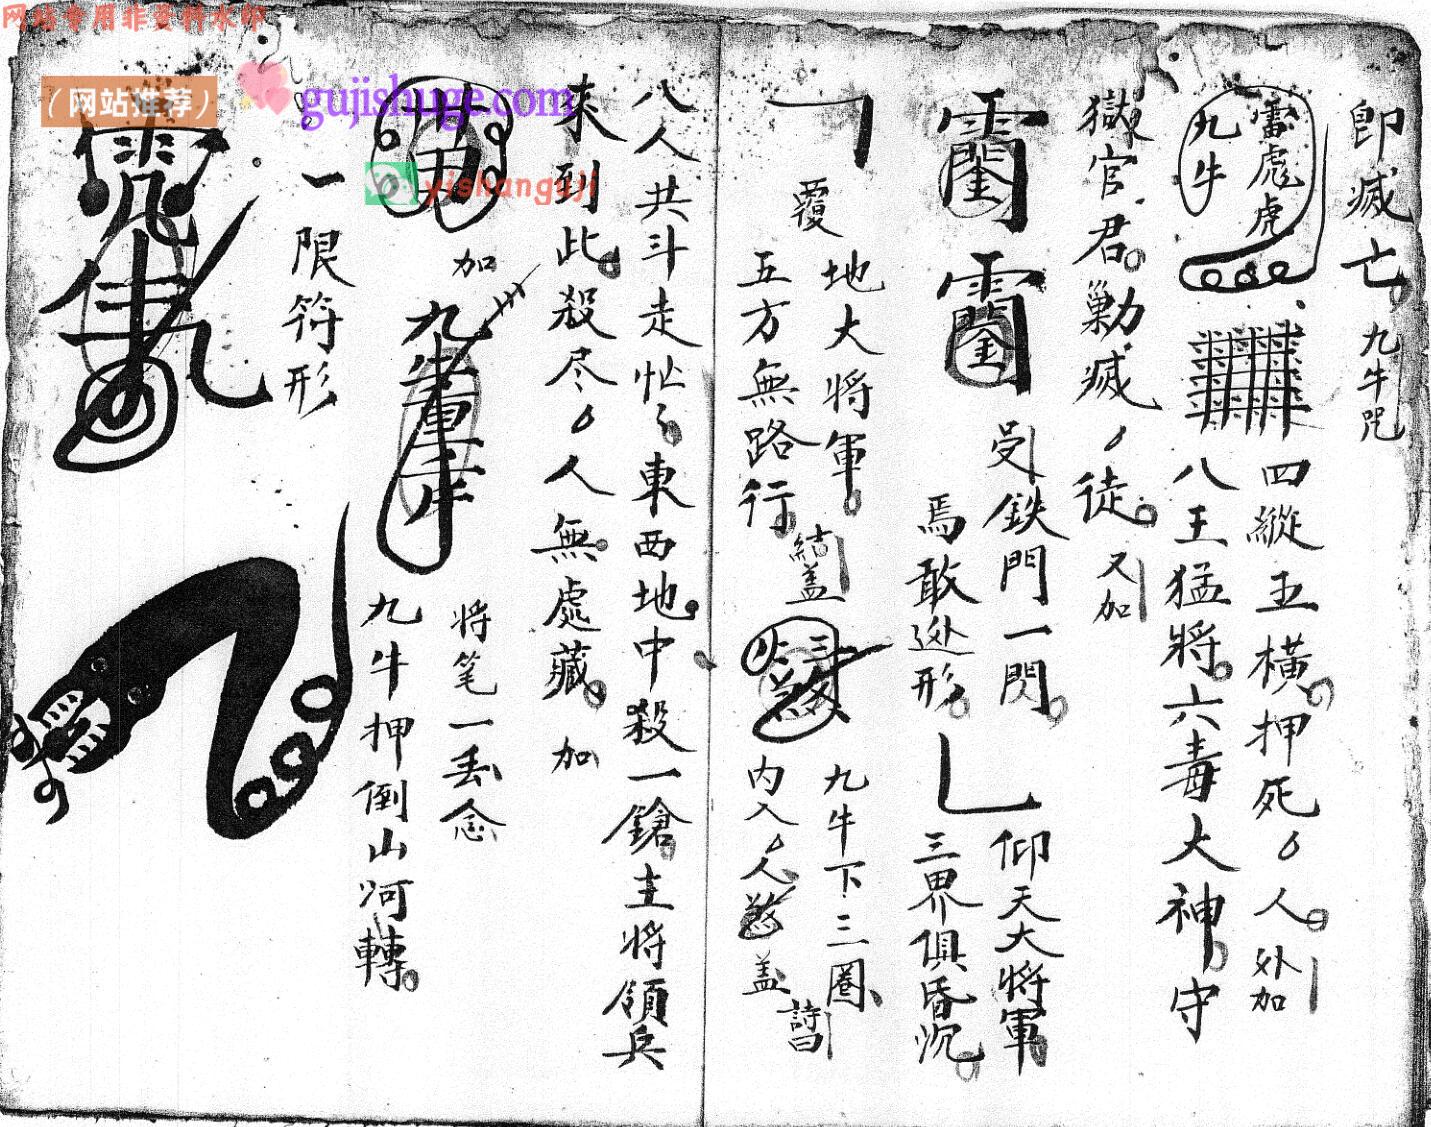 即滅亡。九牛咒
雷彪虎
九牛
四縱五橫押死。人。外加
八王猛將。六毒大神。守
獄官君。剿滅。徒。又加
受鉄門一閃。
焉敢逃形。
仰天大将軍
三界俱昏沉。
地大将軍。
覆
五方無路行。
結盖
九牛下三圈、
内入。人
盖
詩曰
八人共斗走忙々。東西地。中殺一鎗。主将領兵
来到此。殺尽。人無處藏。加
加
九牛
将笔一丢念
九牛押倒山河轉。
一限符形
网站专用非资料水印
(网站推荐)
gujishuge.com
yishanguji